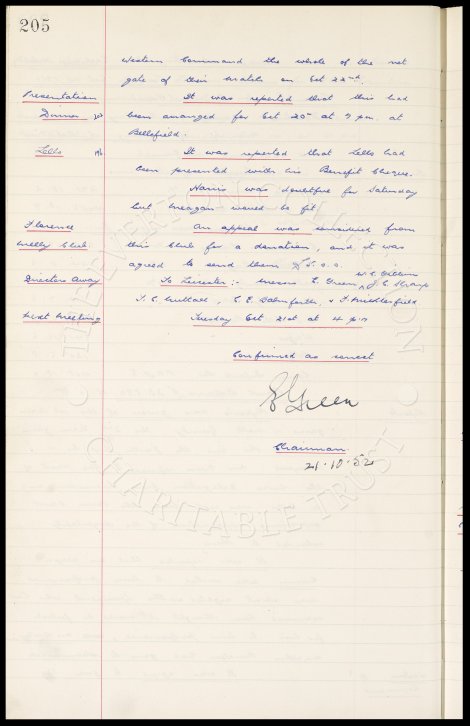 205
Western Command the whole of the net
gate of their match on Oct 22nd.
Presentation
It was reported that this had
Dinner
been arranged for Oct 20th at 7 pm. at
Bellefield.
Lello
It was reported that Lello had
been presented with his Benefit Cheque.
Harris was doubtful for Saturday
but Meagan would be fit.
Florence
An appeal was received from
Melly Club
this Club for a donation, and it was
agreed to send them
Directors Away
To Leicester:- Messrs E. Green, J. C. Sharp
T. C. Nuttall, C. E. Balmforth, & F. Micklesfield
Next Meeting
Tuesday Oct 21st at 4 pm
Confirmed as correct
E Green
Chairman
21.10.52
THE EVERTON COLLECTION CHARITABLE TRUST